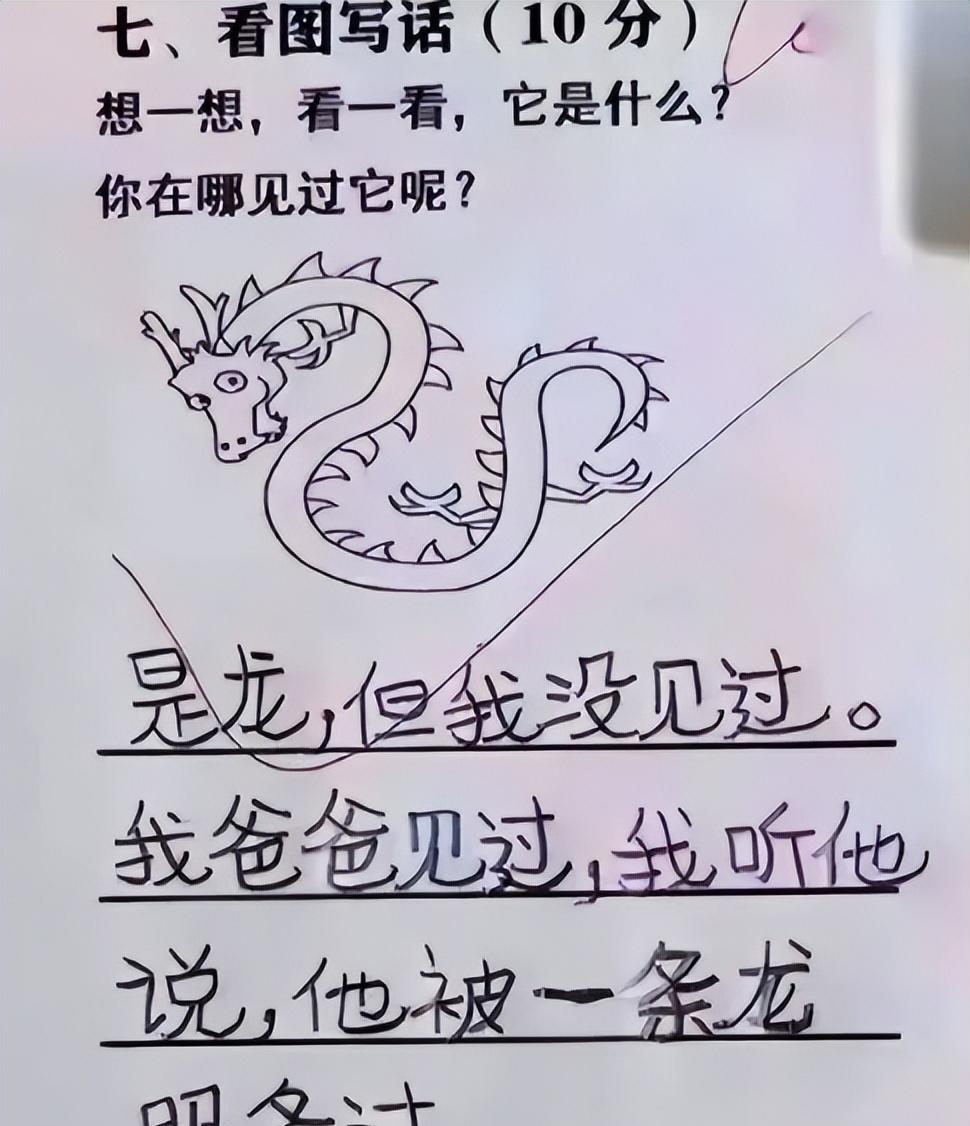 七、看图写话（10分）
想一想，看一看，它是什么？
你在哪见过它呢？
是龙，但我没见过。
我爸爸见过，我听他
说，他被一条龙
服务过